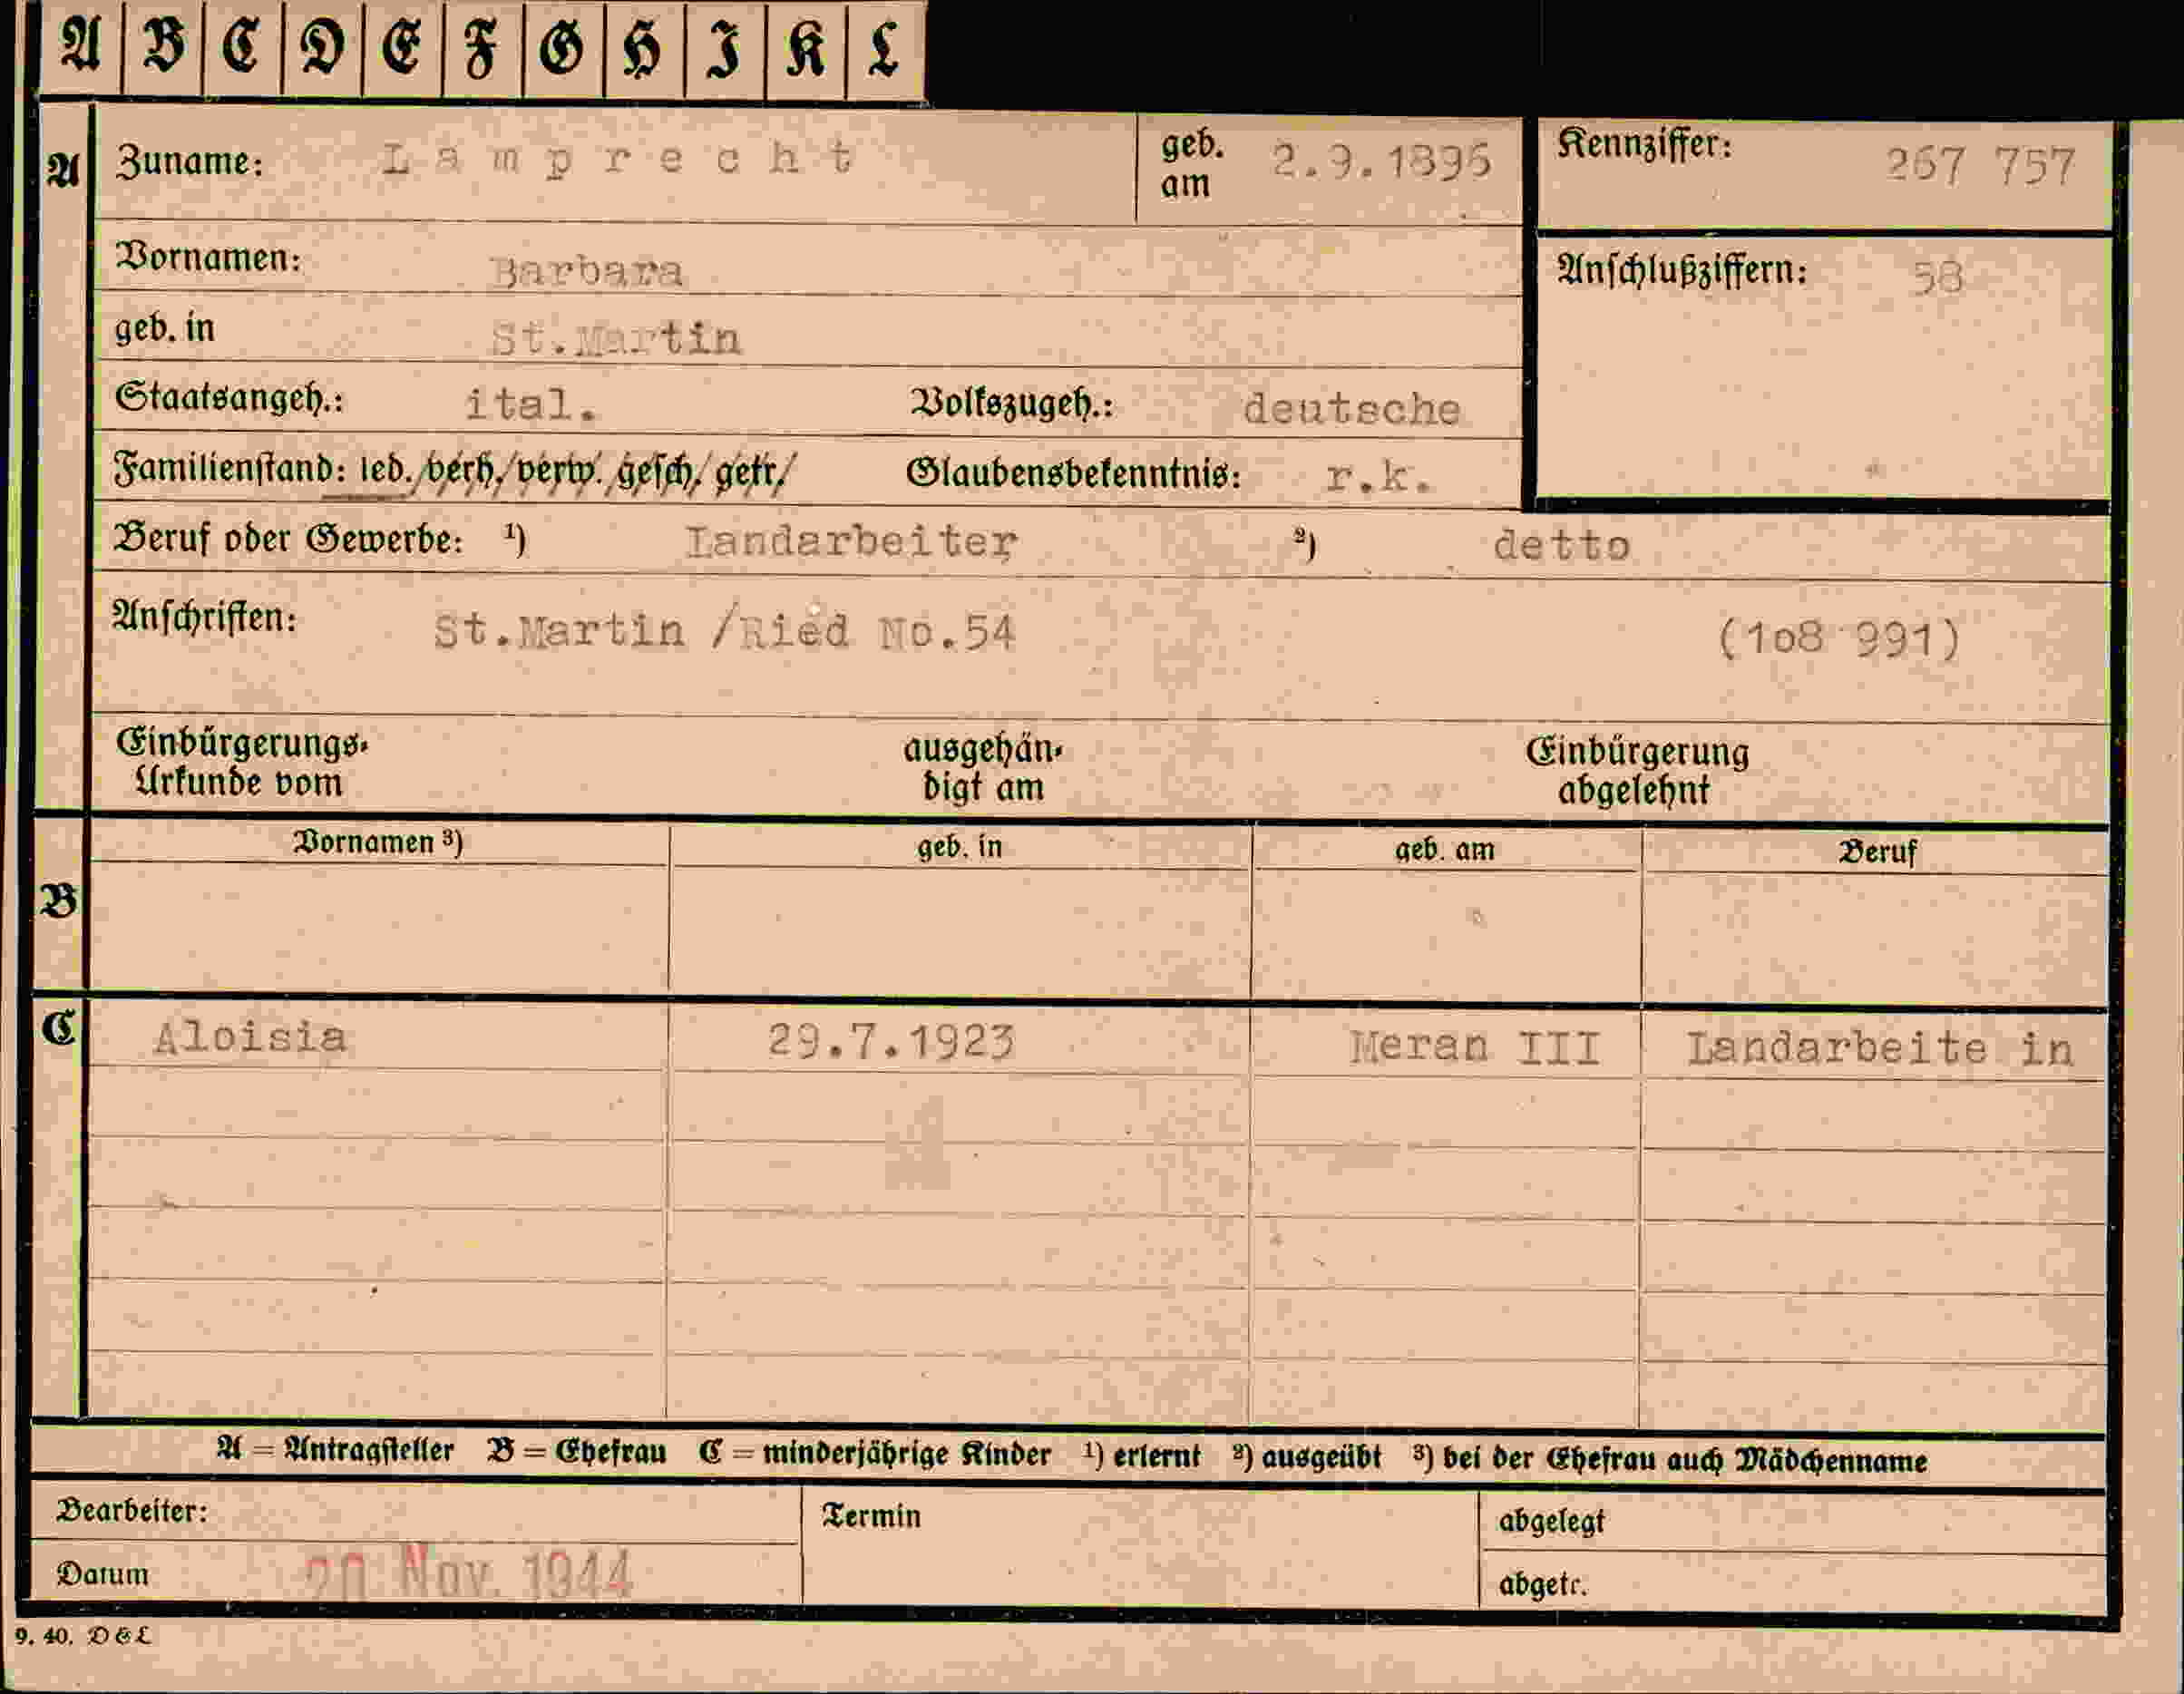 A B C D E F G H I K L
A Zuname: Lamprecht geb. am 2.9.1896 Kennziffer: 267 757
Vornamen: Barbara Anschlußziffern: 58
geb. in St.Martin
Staatsangeh.: ital. Volkszugeh.: deutsche
Familienstand: led./verh./verw./gesch./getr./ Glaubensbekenntnis: r.k.
Beruf oder Gewerbe: ¹) Landarbeiter ²) detto
Anschriften: St.Martin /Ried No.54 (1o8 991)
Einbürgerungs-Urkunde vom ausgehändigt am Einbürgerung abgelehnt
Vornamen ³) geb. in geb. am Beruf
B
C Aloisia 29.7.1923 Meran III Landarbeite in
A = Antragsteller B = Ehefrau C = minderjährige Kinder ¹) erlernt ²) ausgeübt ³) bei der Ehefrau auch Mädchenname
Bearbeiter: Termin abgelegt
Datum 20 Nov. 1944 abgetr.
9. 40. D & L